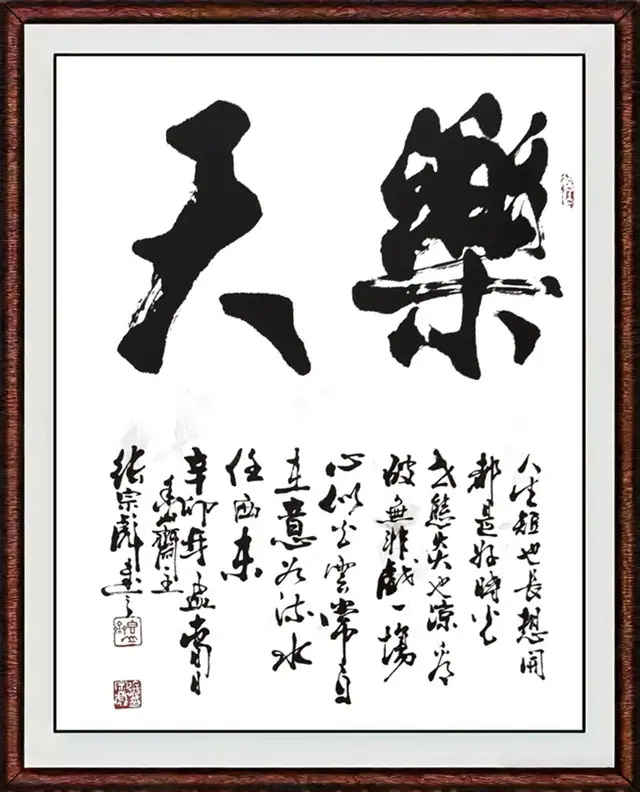 樂天
人生短也長想開
都是好時光
世態炎也涼看
破無非戲一場
心似白雲常自
在意如流水
任西東
辛卯年孟月
齋主
張宗彪書